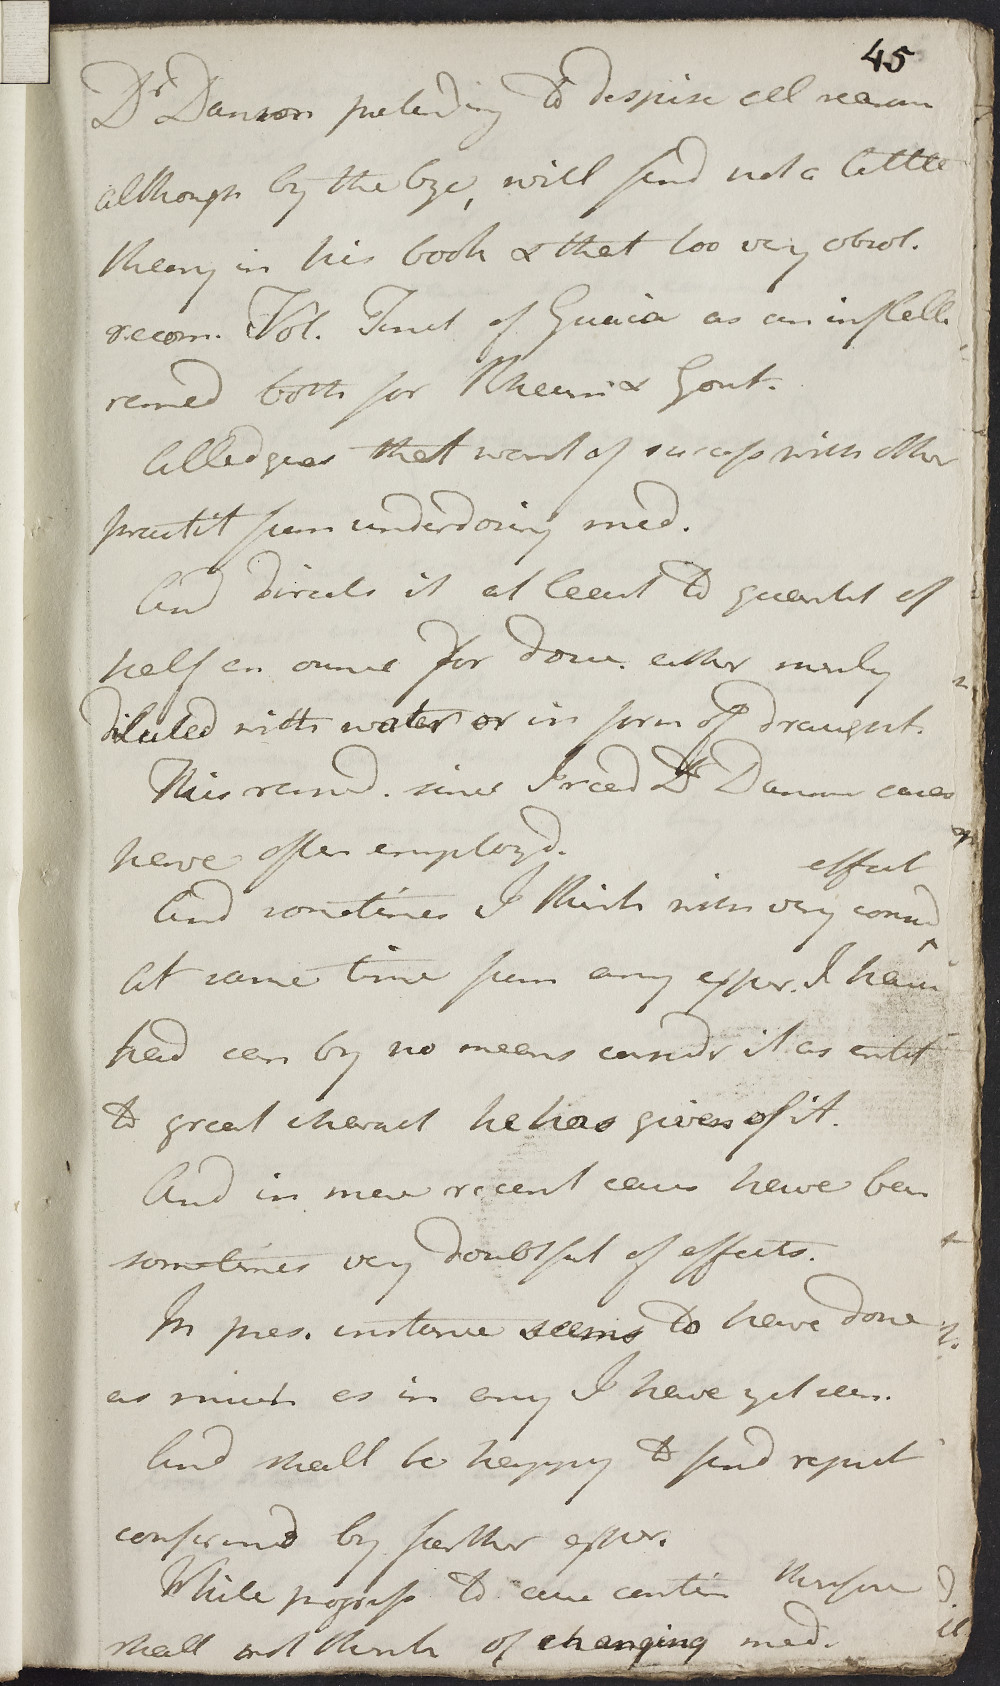 45
Dr Dawson pretending to despise all reason
although by the bye, will find not a little
theory in his book & that too very obsol.
recom. Vol. Tinct of Guaiac as an infalli
remed both for Rheum & Gout.
Alledges that want of success with other
practit from underdosing med.
And directs it at least to quantit of
half an ounce for dose. either merely
diluted with water or in form of draught.
This remed. since I read Dr Dawson cases
have often employd.
And sometimes I think with very consid effect
At same time from any exper. I have
had can by no means consider it as entit
to great charact he has given of it.
And in mere recent cases have been
sometimes very doubtful of effects.
In pres. instance seems to have done
as much as in any I have yet seen.
And shall be happy to find report
confirmed by farther exper.
While progress to cure contin therefore
shall not think of changing med.